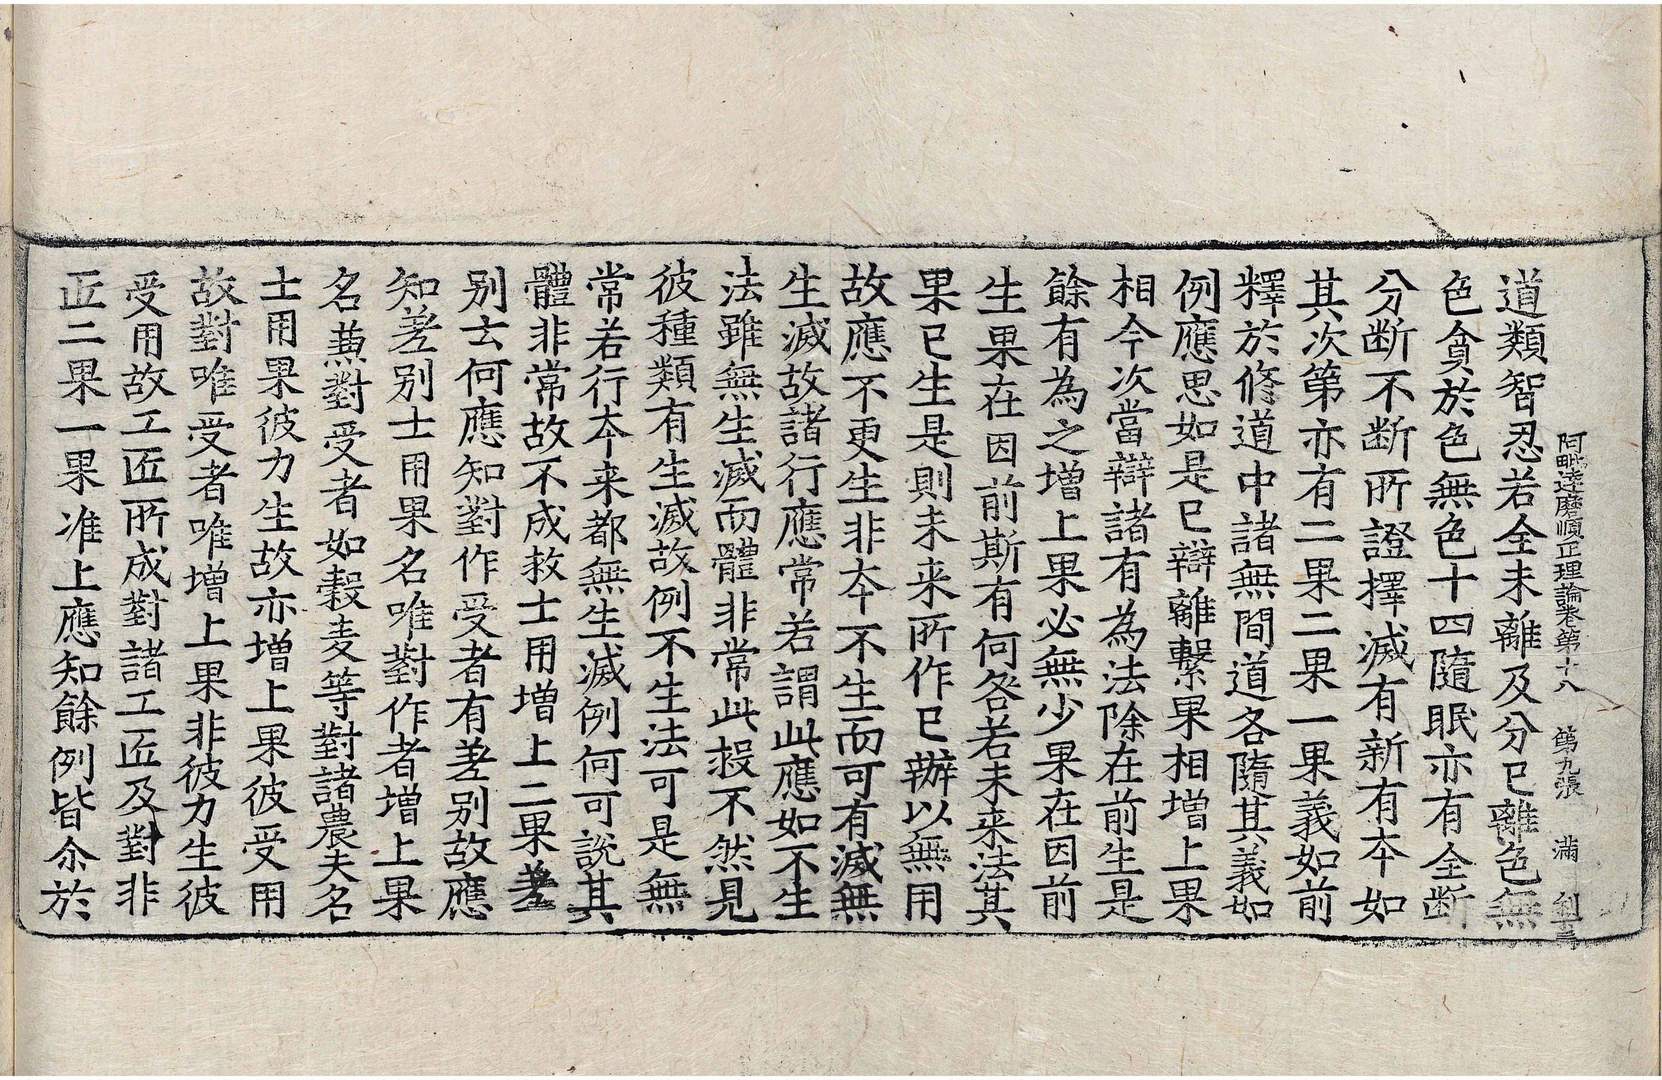 阿毗達磨順正理論卷第十八 第九張 滿
道類智忍若全未離及分已離色無
色貪於色無色十四隨眠亦有全斷
分斷不斷所證擇滅有新有本如
其次第亦有二果二果一果義如前
釋於修道中諸無間道各隨其義如
例應思如是已辯離繫果相增上果
相今次當辯諸有為法除在前生是
餘有為之增上果必無少果在因前
生果在因前斯有何咎若未来法其
果已生是則未来所作已辦以無用
故應不更生非夲不生而可有滅無
生滅故諸行應常若謂此應如不生
法雖無生滅而體非常此救不然見
彼種類有生滅故例不生法可是無
常若行夲来都無生滅例何可說其
體非常故不成救士用增上二果差
別云何應知對作受者有差別故應
知差別士用果名唯對作者增上果
名蕪對受者如穀麦等對諸農夫名
士用果彼力生故亦增上果彼受用
故對唯受者唯增上果非彼力生彼
受用故工匠所成對諸工匠及對非
匠二果一果准上應知餘例皆尒於